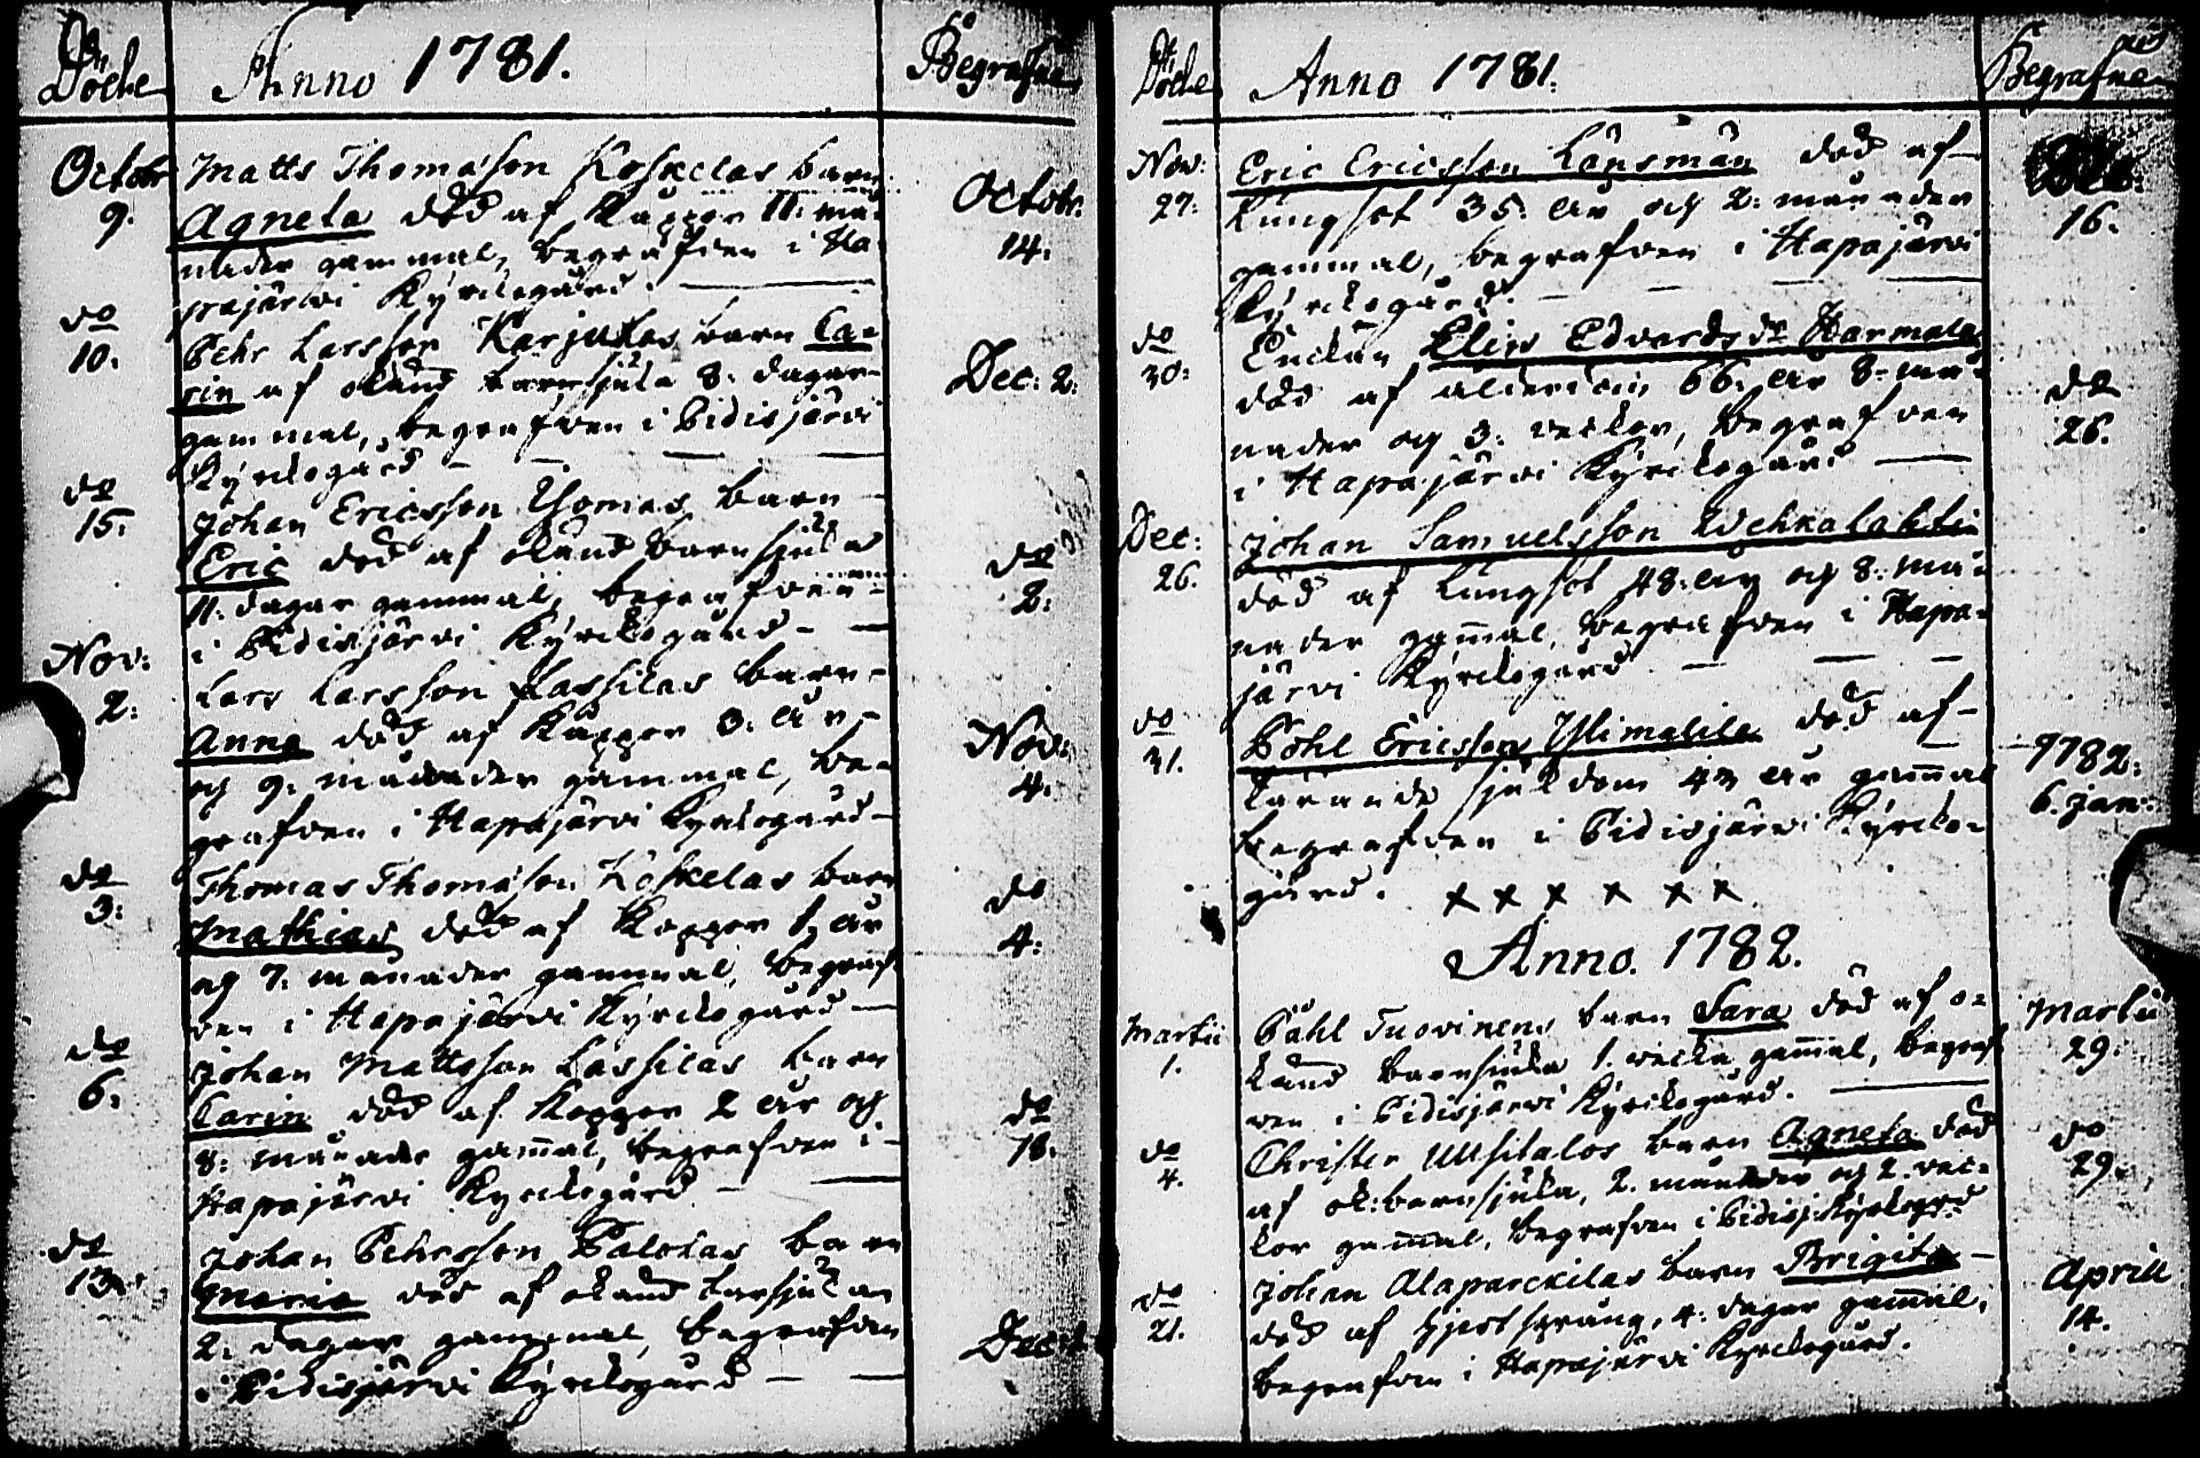 Döde
Anno 1781.
Begrafne
Octobr
9.
Matts Thomasson Koskelas barn
Agneta död af Kåppor 11. må-
nader gammal, begrafven i Ha-
pajärwi Kyrckogård.
Octobr.
14.
do
10.
Pehr Larsson Karjulas barn Ca-
rin af okänd barnsjuka 8. dagar
gammal, begrafven i Pidisjärvi
Kyrckogård
Dec: 2.
do
15.
Johan Ericsson barn
Eric död af okänd barnsjuka
11. dagar gammal, begrafven
i Pidisjärvi Kyrckogård
do
2.
Nov:
2.
Lars Larsson Lassilas barn
Anna död af Kåppor 3. år
och 9. månader gammal, be-
grafven i Hapajärvi Kyrckogård
Nov:
4.
do
3.
Thomas Thomasson Koskelas barn
Mathias död af Koppor 1. år
och 7. månader gammal, begraf-
ven i Hapajärvi Kyrckogård
do
4.
do
6.
Johan Mattsson Lassilas barn
Carin död af Koppor 2 år och
8. månader gam̄al, begrafven i
Hapajärvi Kyrckogård
do
18.
do
13.
Johan Pehrsson Palolas barn
Maria död af okänd barsjukan
2. dagar gammal, begrafven
i Pidisjärvi Kyrckogård
Dec:
Döde
Anno 1781.
Begrafne
Nov:
27.
Eric Ericsson Länsman död af
Lungsot 35. år och 2. månader
gammal, begrafven i Hapajärvi
Kyrckogård.
Dec:
16.
do
30.
Enckan Elin Edvardsdr Harmala
död af ålderdom, 66. år 8. må-
nader och 3. veckor, begrafven
i Hapajärvi Kyrckogård
do
26.
Dec:
26.
Johan Samuelsson Wehkalahti
död af Lungsot 48. år och 8. må-
nader gam̄al, begrafven i Hapa-
järvi Kyrckogård
do
31.
Påhl Ericsson Ylimalila död af
tärande sjukdom 43 år gam̄al
begrafven i Pidisjärvi Kyrcko-
gård. x x x x x x
1782.
6. Jan:
Anno. 1782.
Martii
1.
Påhl Tuovinens barn Sara död af o-
känd barnsjuka 1. vecka gam̄al, begraf-
ven i Pidisjärvi Kyrckogård.
Martii
29.
do
4.
Christer Uusitalos barn Agneta död
af ok: barnsjuka, 2. månader och 2. vec-
kor gam̄al, begrafven i Pidisj. Kyrckogrd
do
29.
do
21.
Johan Alaparckilas barn Brigita
död af hjertsprång, 4. dagar gam̄al,
begrafven i Hapajärvi Kyrckogård.
Aprill
14.